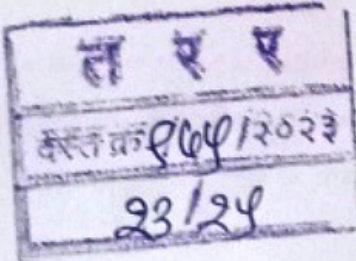 त र ए
दस्त क्र ९७५/२०२३
२३/२५